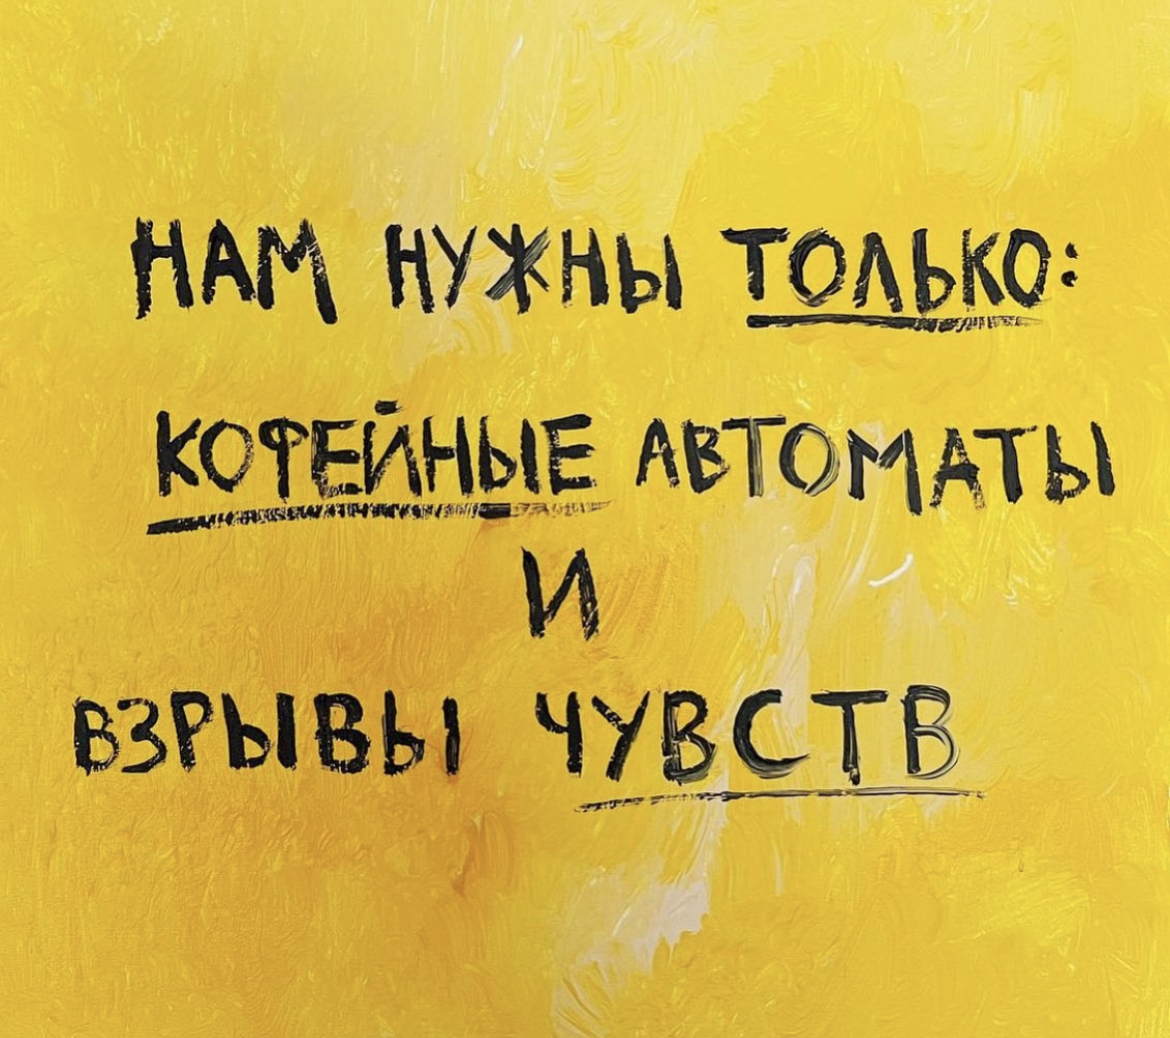 НАМ НУЖНЫ ТОЛЬКО:
КОФЕЙНЫЕ АВТОМАТЫ
И
ВЗРЫВЫ ЧУВСТВ